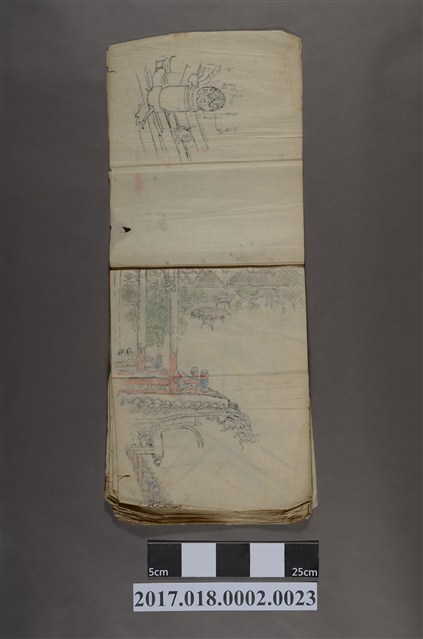 5cm
25cm
2017.018.0002.0023